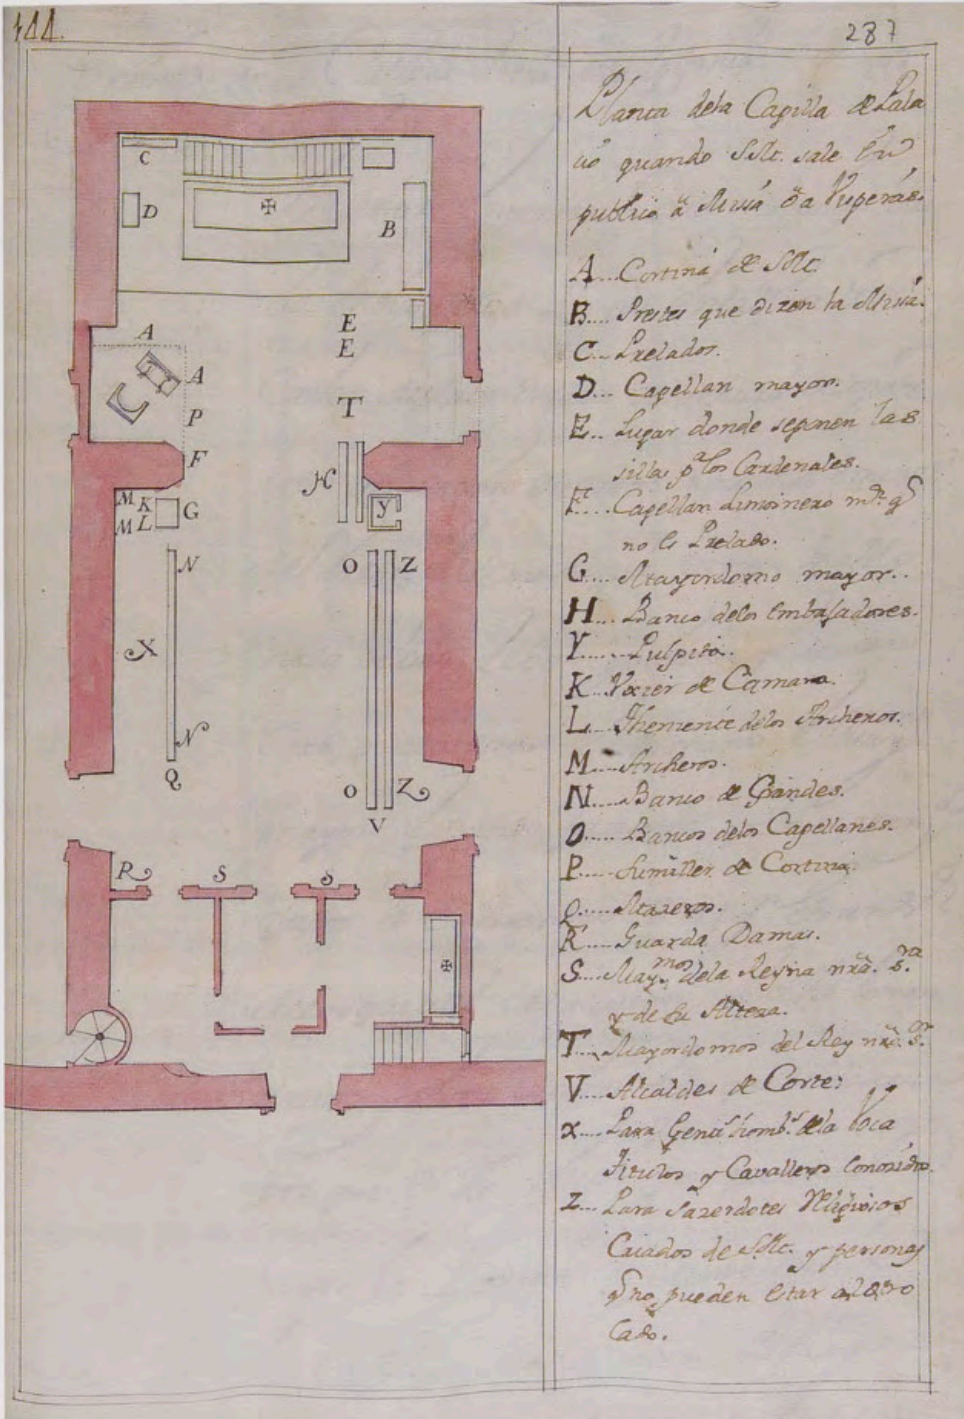 144.
287
Planta dela Capilla de Pala
cio quando S.Mt. sale en
publico â Missa ô a Visperas.
A... Cortina de S.Mt.
B.... Prestes que dizen la Missa.
C... Prelados.
D... Capellan mayor.
E... Lugar donde seponen las
sillas pª. los Cardenales.
F.... Capellan Limosnero mor. q̃
no es Prelado.
G.... Mayordomo mayor..
H.... Banco delos Embaxadores.
Y...... Pulpito..
K... Vxier de Camara.
L.... Theniente delos Archeros.
M..... Archeros.
N..... Banco de Grandes.
O..... Bancos delos Capellanes.
P..... Sumiller de Cortina.
Q..... Mazeros.
R.... Guarda Damas.
S.... May.mos dela Reyna nrã. s.ra
y de su Alteza.
T.... Mayordomos del Rey nrõ. s.or
V.... Alcaldes de Corte:
X.... Para Gentilhomb.s dela voca
Titulos y Cavalleros conosidos.
Z.... Para Sazerdotes Religiosos
Criados de S.Mt. y personas
q̃ no pueden estar a otro
Cabo.
C
D
B
E
E
A
A
P
T
F
H
M K G
M L
Y
N
O Z
X
N
Q
O Z
V
R S S